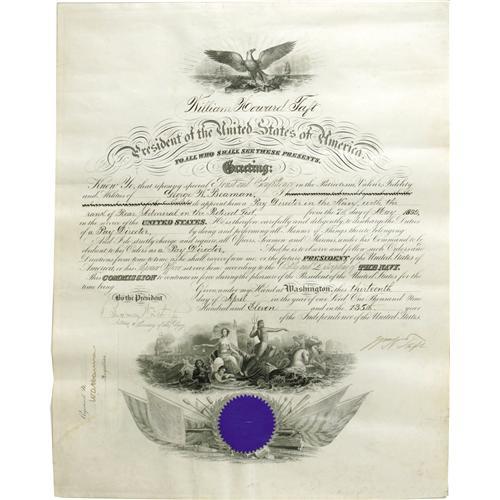 William Howard Taft
President of the United States of America.
TO ALL WHO SHALL SEE THESE PRESENTS,
Greeting:
Know Ye, that reposing special Trust and Confidence in the Patriotism, Valor, Fidelity
and Abilities of George W. Beaman, I
appoint him a Pay Director in the Navy, with the
rank of Rear Admiral on the Retired List, from the day of May
in the service of the UNITED STATES. He is therefore carefully and diligently to discharge the Duties
of a Pay Director, by doing and performing all Manner of Things thereto belonging.
And I do strictly charge and require all Officers, Seamen and Marines under his Command to be
obedient to his Orders as a Pay Director. And he is to observe and follow such Orders and
Directions from time to time as he shall receive from me, or the future PRESIDENT of the United States of
America, or his Superior Officer set over him, according to the Rules and Discipline of THE NAVY.
This COMMISSION to continue in force during the pleasure of the President of the United States for the
time being.
Given under my Hand at Washington, this thirteenth
day of April in the year of our Lord One Thousand Nine
Hundred and Eleven and in the 135th year
of the Independence of the United States.
By the President
Secretary of the Navy.
Wm H Taft
Registered